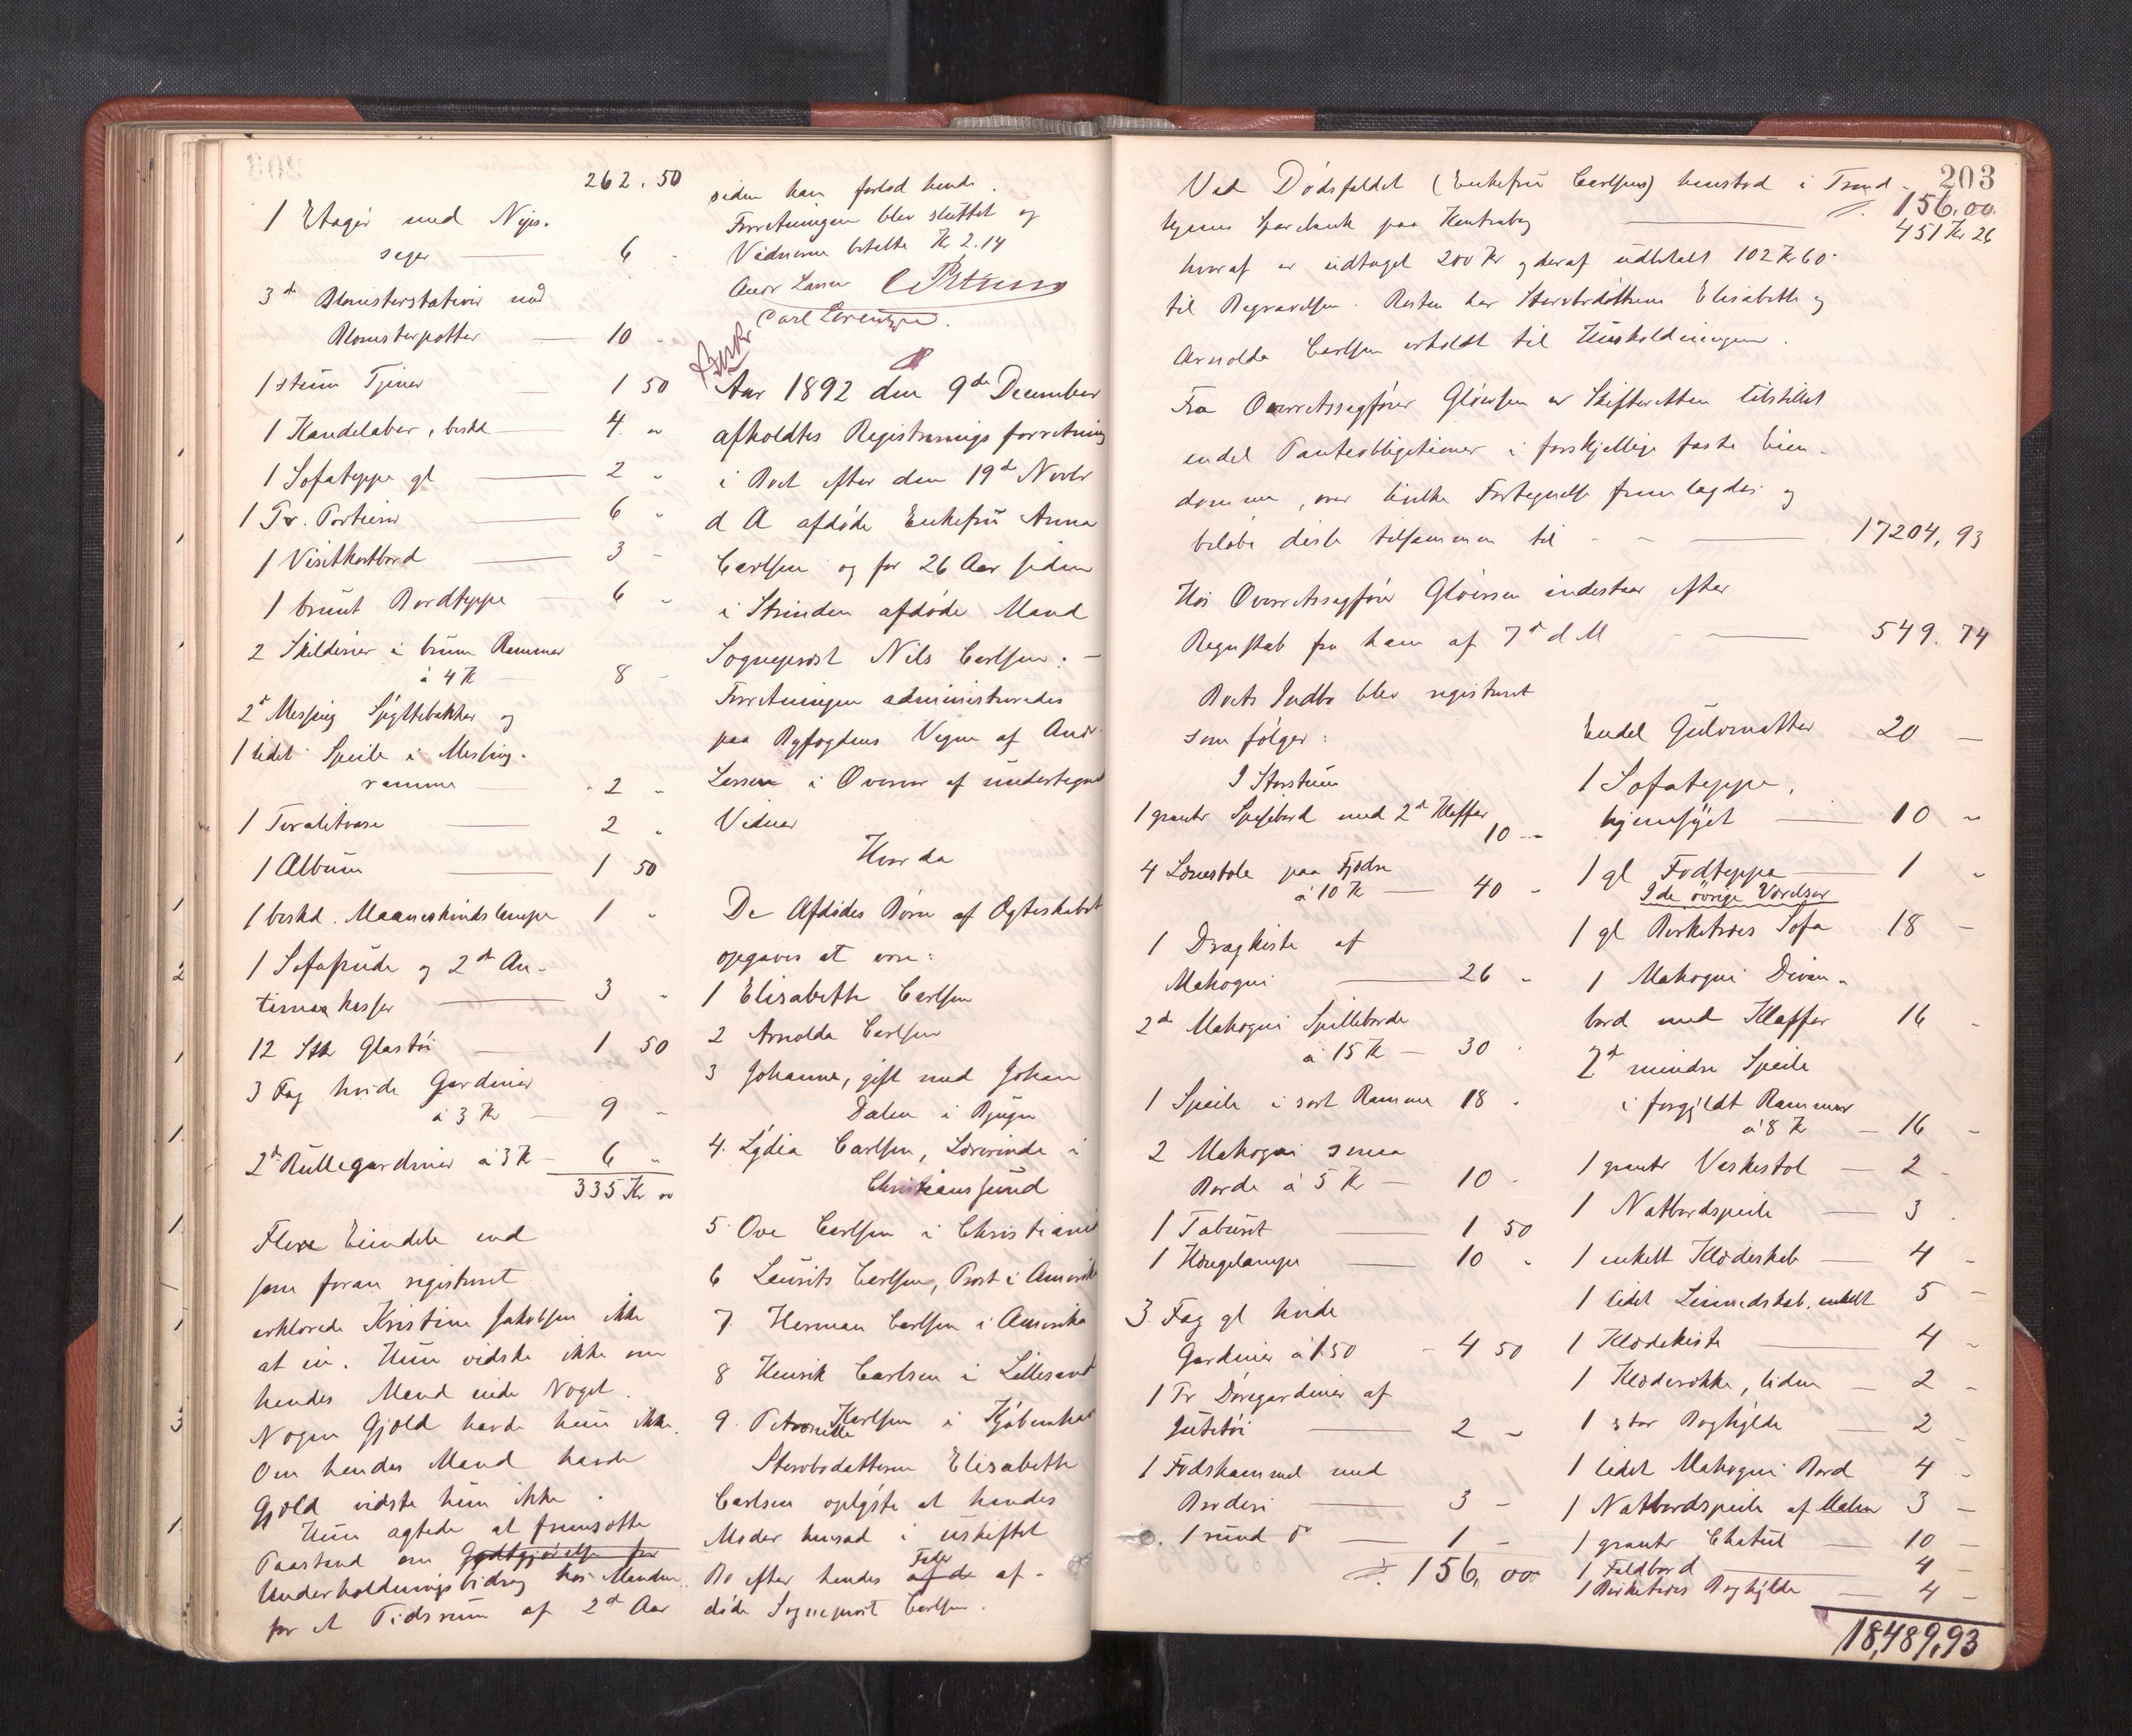 262.50
1 Etagér med Nips-
sager — 6 -
3de Blomsterstativer med
Blomsterpotter — 10 -
1 1 50
1 Kandelaber, beskd — 4 -
1 Sofateppe gl — 2 -
1 Pr. Portierer — 6 -
1 Visitkortbord — 3 -
1 brunt Bordteppe — 6 -
2 Skilderier i brun Rammer
à 4 Kr — 8 -
2d Messing Spyttebakker og
1 lidet Speile i Messing-
ramme — 2 -
1 Teralitvase — 2 -
1 Album — 1 50
1 beskd. Maaneskinds lampe 1 -
1 Sofapude og 2de An-
timakasser — 3 -
12 Stkr Glastöi — 1 50
3 Fag hvide Gardiner
à 3 Kr — 9 -
2de Rullegardiner à 3 Kr — 6 -
335 Kr 00
Flere Eiendele end
som foran registreret
erklærede Kristine Jakobsen ikke
at eie. Hun vidste ikke om
hendes Mand eiede Noget.
Nogen Gjæld havde hun ikke.
Om hendes Mand havde
Gjæld vidste hun ikke.
Hun agtede at fremsætte
Paastand om Godtgjörelse for
Underholdningsbidrag hos Manden
for et Tidsrum af 2de Aar
siden han forlod hende.
Forretningen blev sluttet og
Vidnerne betalte Kr 2.14
Andr Lassen
Carl Lorentzen.
Aar 1892 den 9de December
afholdtes Registreringsforretning
i Boet efter den 19de Novbr
d A afdöde Enkefru Anna
Carlsen og for 26 Aar siden
i Strinden afdöde Mand
Sogneprest Nils Carlsen. —
Forretningen administreredes
paa Byfogdens Vegne af Andr
Lassen i Overvær af undertegnede
Vidner
Hvorda
De Afdödes Börn af Ægteskabet
opgaves at være:
1 Elisabeth Carlsen
2 Arnolda Carlsen
3 Johanne, gift med Johan
Dalen i Bjugn
4. Lydia Carlsen, Lærerinde i
Christianssund
5. Ove Carlsen i Christiania
6 Laurits Carlsen, Prest i Amerika
7. Herman Carlsen i Amerika
8 Henrik Carlsen i Lillesand
9. Petronelle Karlsen i Kjöbenhavn
Stervbodatteren Elisabeth
Carlsen oplyste at hendes
Moder hensad i uskiftet
Bo efter hendes Fader af-
döde Sogneprest Carlsen.
203
Ved Dödsfaldet (Enkefru Carlsens) henstod i Trond-
hjems Sparebank paa Kontrabog — 451 Kr 26
156.00.
hvoraf er udtaget 200 Kr og deraf udbetalt 102 Kr 60
til Begravelsen. Resten har Stervbodöttrene Elisabeth og
Arnolda Carlsen erholdt til Husholdningen.
Fra Overretssagförer Glöersen er Skifteretten tilstillet
endel Panteobligationer i forskjellige faste Eien-
domme, over hvilke Fortegnelse fremlagdes og
belöbe disse tilsammen til — 17204,93
Hos Overretssagförer Glöersen indestaar efter
Regnskab fra ham af 7de d M — 549.74
Boets Indbo blev registreret
som fölger:
I Storstuen
1 grantr Spisebord med 2de Klaffer
10 -
4 Lænestole paa Fjædre
à 10 Kr — 40 -
1 Dragkiste af
Mahogni — 26 -
2de Mahogni Spilleborde
à 15 Kr — 30 -
1 Speile i sort Ramme 18 -
2 Mahogni smaa
Borde à 5 Kr — 10 -
1 Taburet — 1 50
1 Hængelampe — 10 -
3 Fag gl hvide
Gardiner à 1.50 - 4 50
1 Pr Döregardiner af
Jutetöi — 2 -
1 Fodskammel med
Broderi — 3 -
1 rund do — 1 -
156,00
Endel Gulvmatter 20 —
1 Sofateppe,
hjemsyet — 10 -
1 gl Fodteppe — 1 -
I de övrige Værelser
1 gl Birketræes Sofa 18 -
1 Mahogni Divan-
bord med Klaffer 16 -
2de mindre Speile
i forgyldt Rammer
à 8 Kr — 16 -
1 grantr Vaskestol — 2 -
1 Natbordspeile — 3 -
1 enkelt Klædeskab — 4 -
1 lidet Linnedskab, enkelt 5 -
1 Klædekiste — 4 -
1 Klæderække, liden — 2 -
1 stor Boghylde — 2 -
1 lidet Mahogni Bord 4 -
1 Natbordspeile af Malm 3 —
1 grantr Chatul — 10 -
1 Foldbord — 4 -
1 Birketræes Boghylde — 4 -
18,489,93